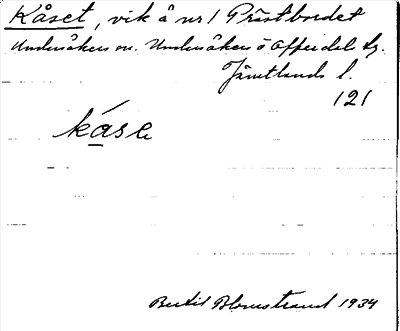 Kåset, vik å nr 1 Prästbordet
Undersåkers sn. Undersåkers o Offerdal tg.
Jämtlands l.
121
kása
Bertil Blomstrand 1934